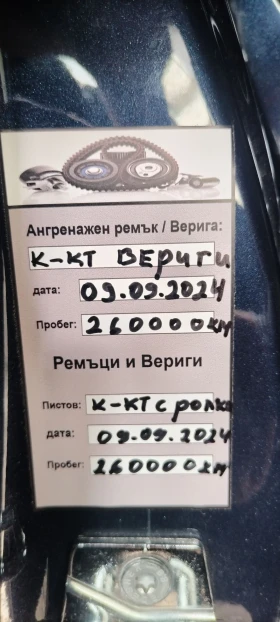 Ангренажен ремък / Верига:
К-КТ ВЕРИГИ
дата: 09.09.2024
Пробег: 260000км
Ремъци и Вериги
Пистов: К-КТ с ролки
дата: 09.09.2024
Пробег: 260000км